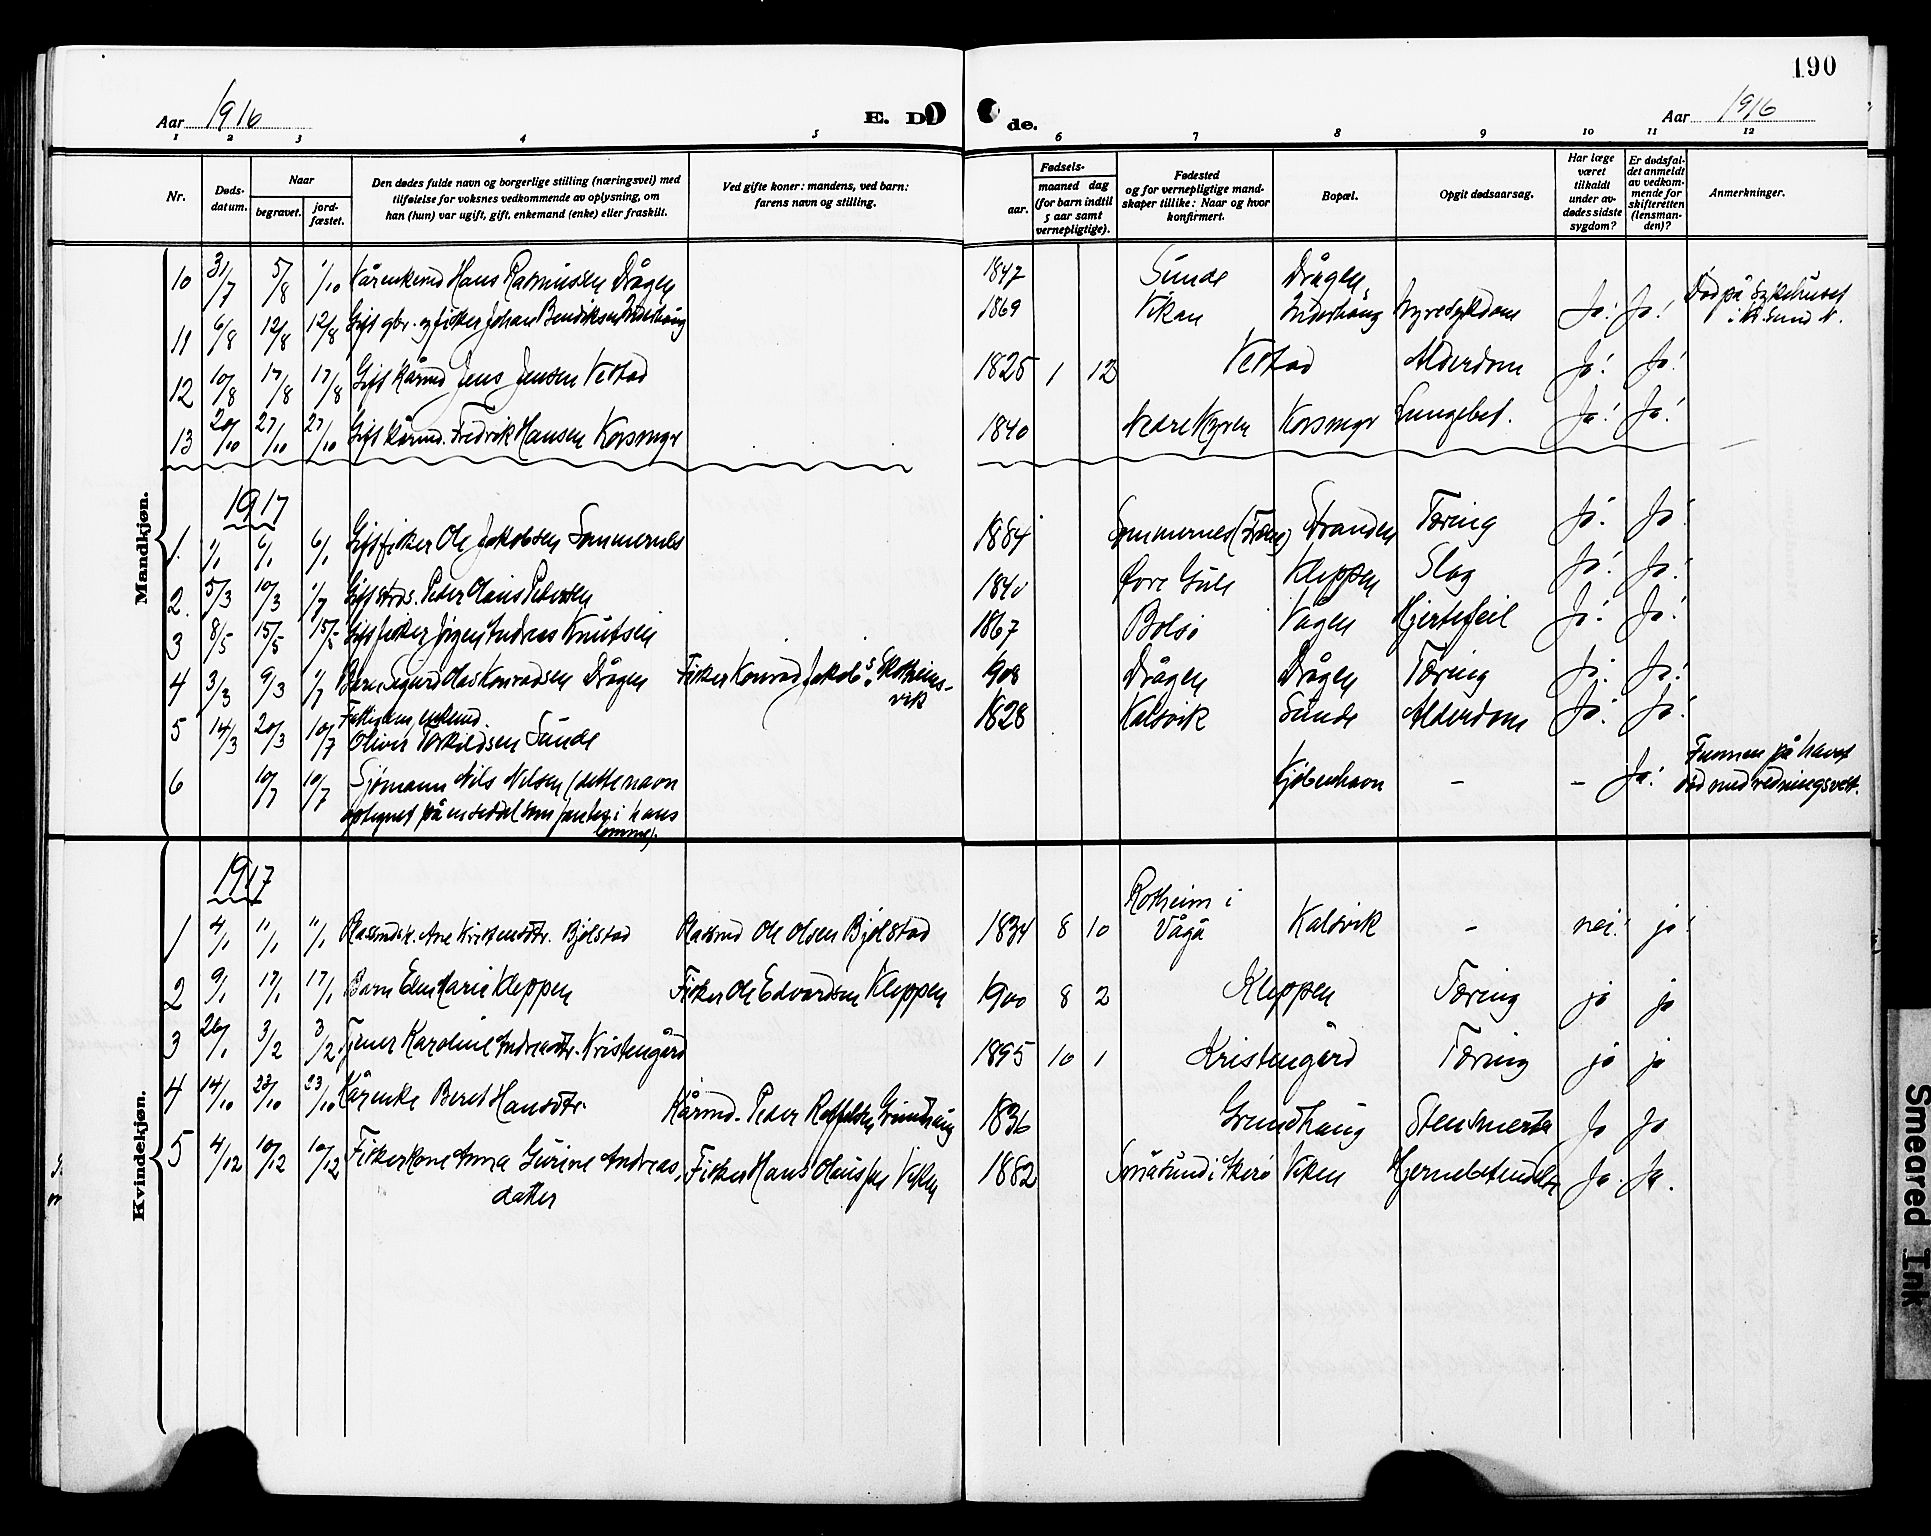 190
Aar 1916
E. Døde.
Aar 1916
1 2 3 4 5 6 7 8 9 10 11 12
Nr.
Dødsdatum.
Naar
begravet.
jordfæstet.
Den dødes fulde navn og borgerlige stilling (næringsvei) med
tilføielse for voksnes vedkommende av oplysning, om
han (hun) var ugift, gift, enkemand (enke) eller fraskilt.
Ved gifte koner: mandens, ved barn:
farens navn og stilling.
Fødsels-
aar.
maaned dag
(for barn indtil
5 aar samt
vernepligtige).
Fødested
og for vernepligtige mand-
skaper tillike: Naar og hvor
konfirmert.
Bopæl.
Opgit dødsaarsag.
Har læge
været
tilkaldt
under av-
dødes sidste
sygdom?
Er dødsfal-
det anmeldt
av vedkom-
mende for
skifteretten
(lensman-
den)?
Anmerkninger.
Mandkjøn.
10 31/7 5/8 1/10 Kårenkemd Hans Rasmussen Drågen 1847 Sunde Drågen
11 6/8 12/8 12/8 Gift gbr. og fisker Johan Bendiksen Inderhaug 1869 Vikan Inderhaug Nyresykdom Ja! Ja! Død på sykehuset
i Kr.sund N.
12 10/8 17/8 17/8 Gift kårmd Jens Jensen Vestad 1825 1 12 Vestad Alderdom Ja! Ja!
13 20/10 27/10 27/10 Gift kårmd. Fredrik Hansen Korsmyr 1840 Nedre Myren Korsmyr Lungebet. Ja! Ja!
1917
1. 1/1 6/1 6/1 Gift fisker Ole Jakobsen Sommernes 1884 Sommernes Stranden Tæring Ja! Ja!
2. 5/3 10/3 1/7 Gift strds. Peder Olaus Pedersen 1840 Øvre Gule Kleppen Slag Ja! Ja!
3 8/5 15/5 15/5 Gift fisker Jørgen Andreas Knutsen 1867 Bolsø Vågen Hjertefeil Ja! Ja!
4 3/3 9/3 1/7 Barn Sigurd Olas Konradsen Drågen Fisker Konrad Jakobs. Skotheims-
vik 1908 Drågen Drågen Tæring Ja! Ja!
5 14/3 20/3 10/7 Fattiglem, enkemd.
Oliver Torkildsen Sunde 1828 Kalsvik Sunde Alderdom Ja! Ja!
6 10/7 10/7 Sjømann Nils Nilsen (dette navn
optegnet på en seddel som fandtes i hans
lomme). Kjøbenhavn - - Ja! Funnen på havet
død med redningsvest.
Kvindekjøn.
1917
1 4/1 11/1 11/1 Plassmdsk. Ane Kristensdtr. Bjølstad Plassmd Ole Olsen Bjølstad 1834 8 10 Rotheim i
Vågå Kalsvik - nei! ja!
2 9/1 17/1 17/1 Barn Elen Marie Kleppen Fisker Ole Edvardsen Kleppen 1900 8 2 Kleppen Tæring ja ja
3 26/1 3/2 3/2 Tjener Karoline Andreasdtr. Kristengård 1895 10 1 Kristengård Tæring ja ja
4 14/10 23/10 23/10 Kårenke Beret Hansdtr. Kårmd. Peder Roffelsen Grundhaug 1836 Grundhaug Stensmerter Ja Ja
5 4/12 10/12 10/12 Fiskerkone Anna Gurine Andreas-
datter Fisker Hans Olaus sen Viken 1882 Småsund i Akerø Viken Hjernebetendelse Ja. Ja.
Smeared Ink